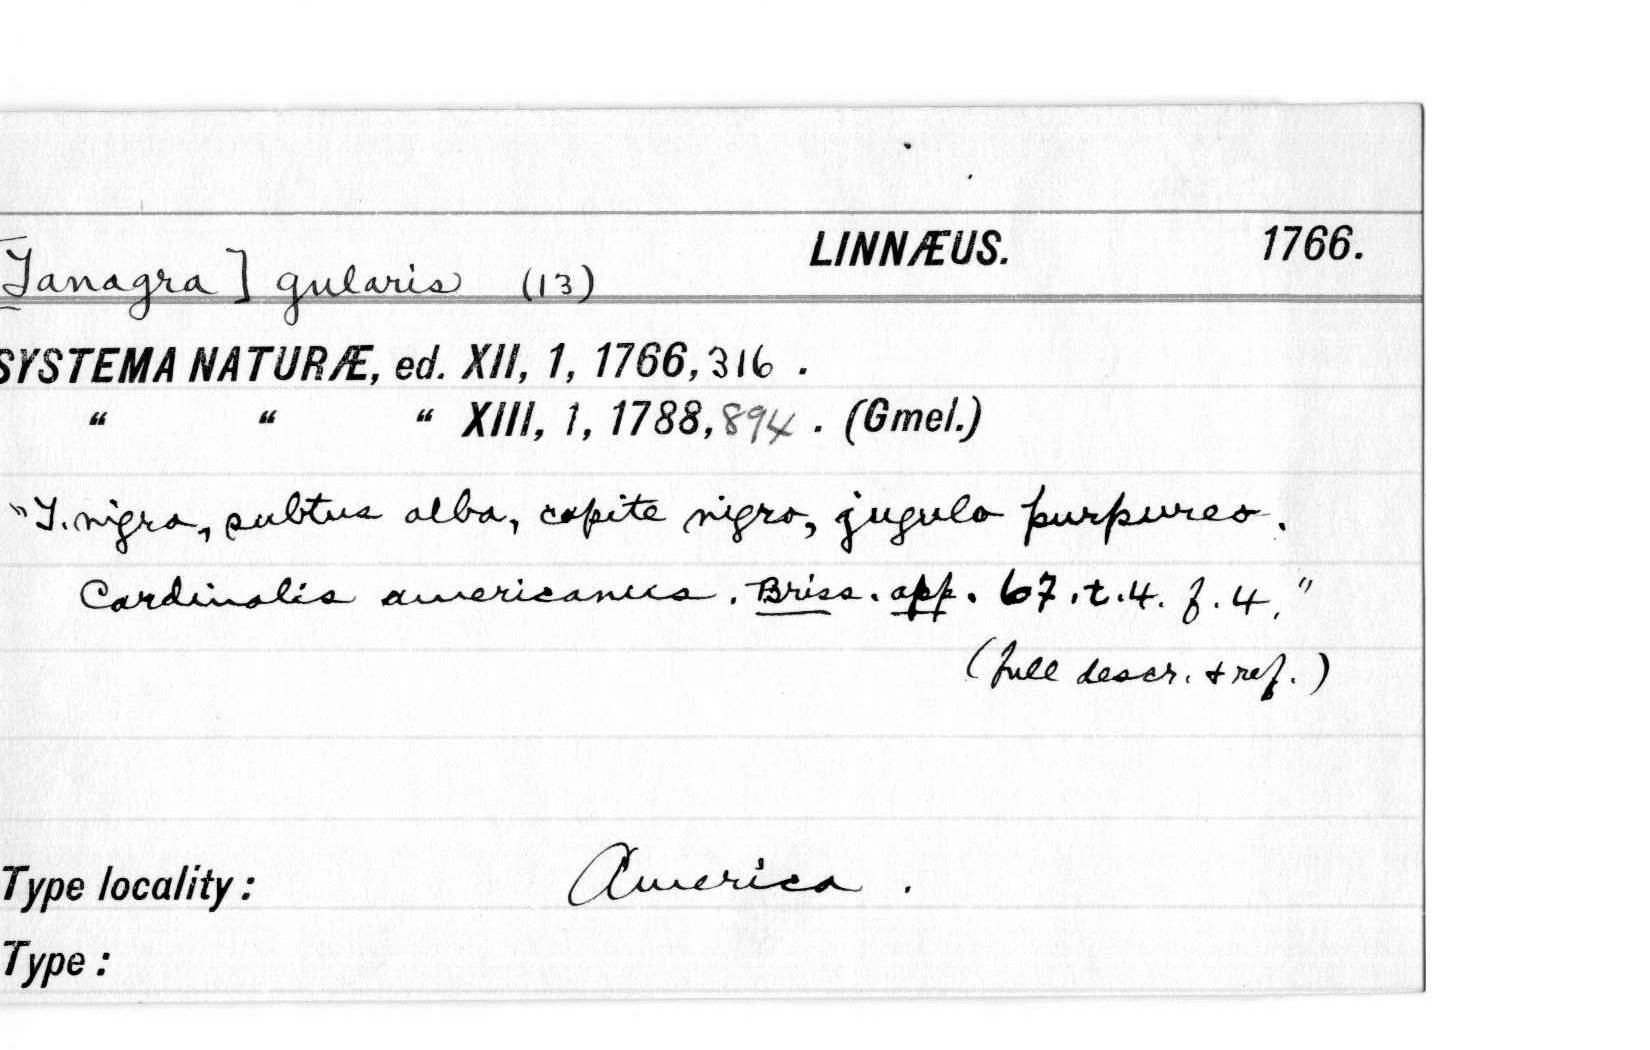 [Tanagra] gularis (13) LINNÆUS. 1766.
SYSTEMA NATURÆ, ed. XII, 1, 1766, 316 .
“ “ “ XIII, 1, 1788, 894 . (Gmel.)
"T. nigra, subtus alba, capite nigro, jugulo purpureo.
Cardinalis americanus. Briss. app. 67. t. 4. f. 4."
(full descr. & ref.)
Type locality: America .
Type :